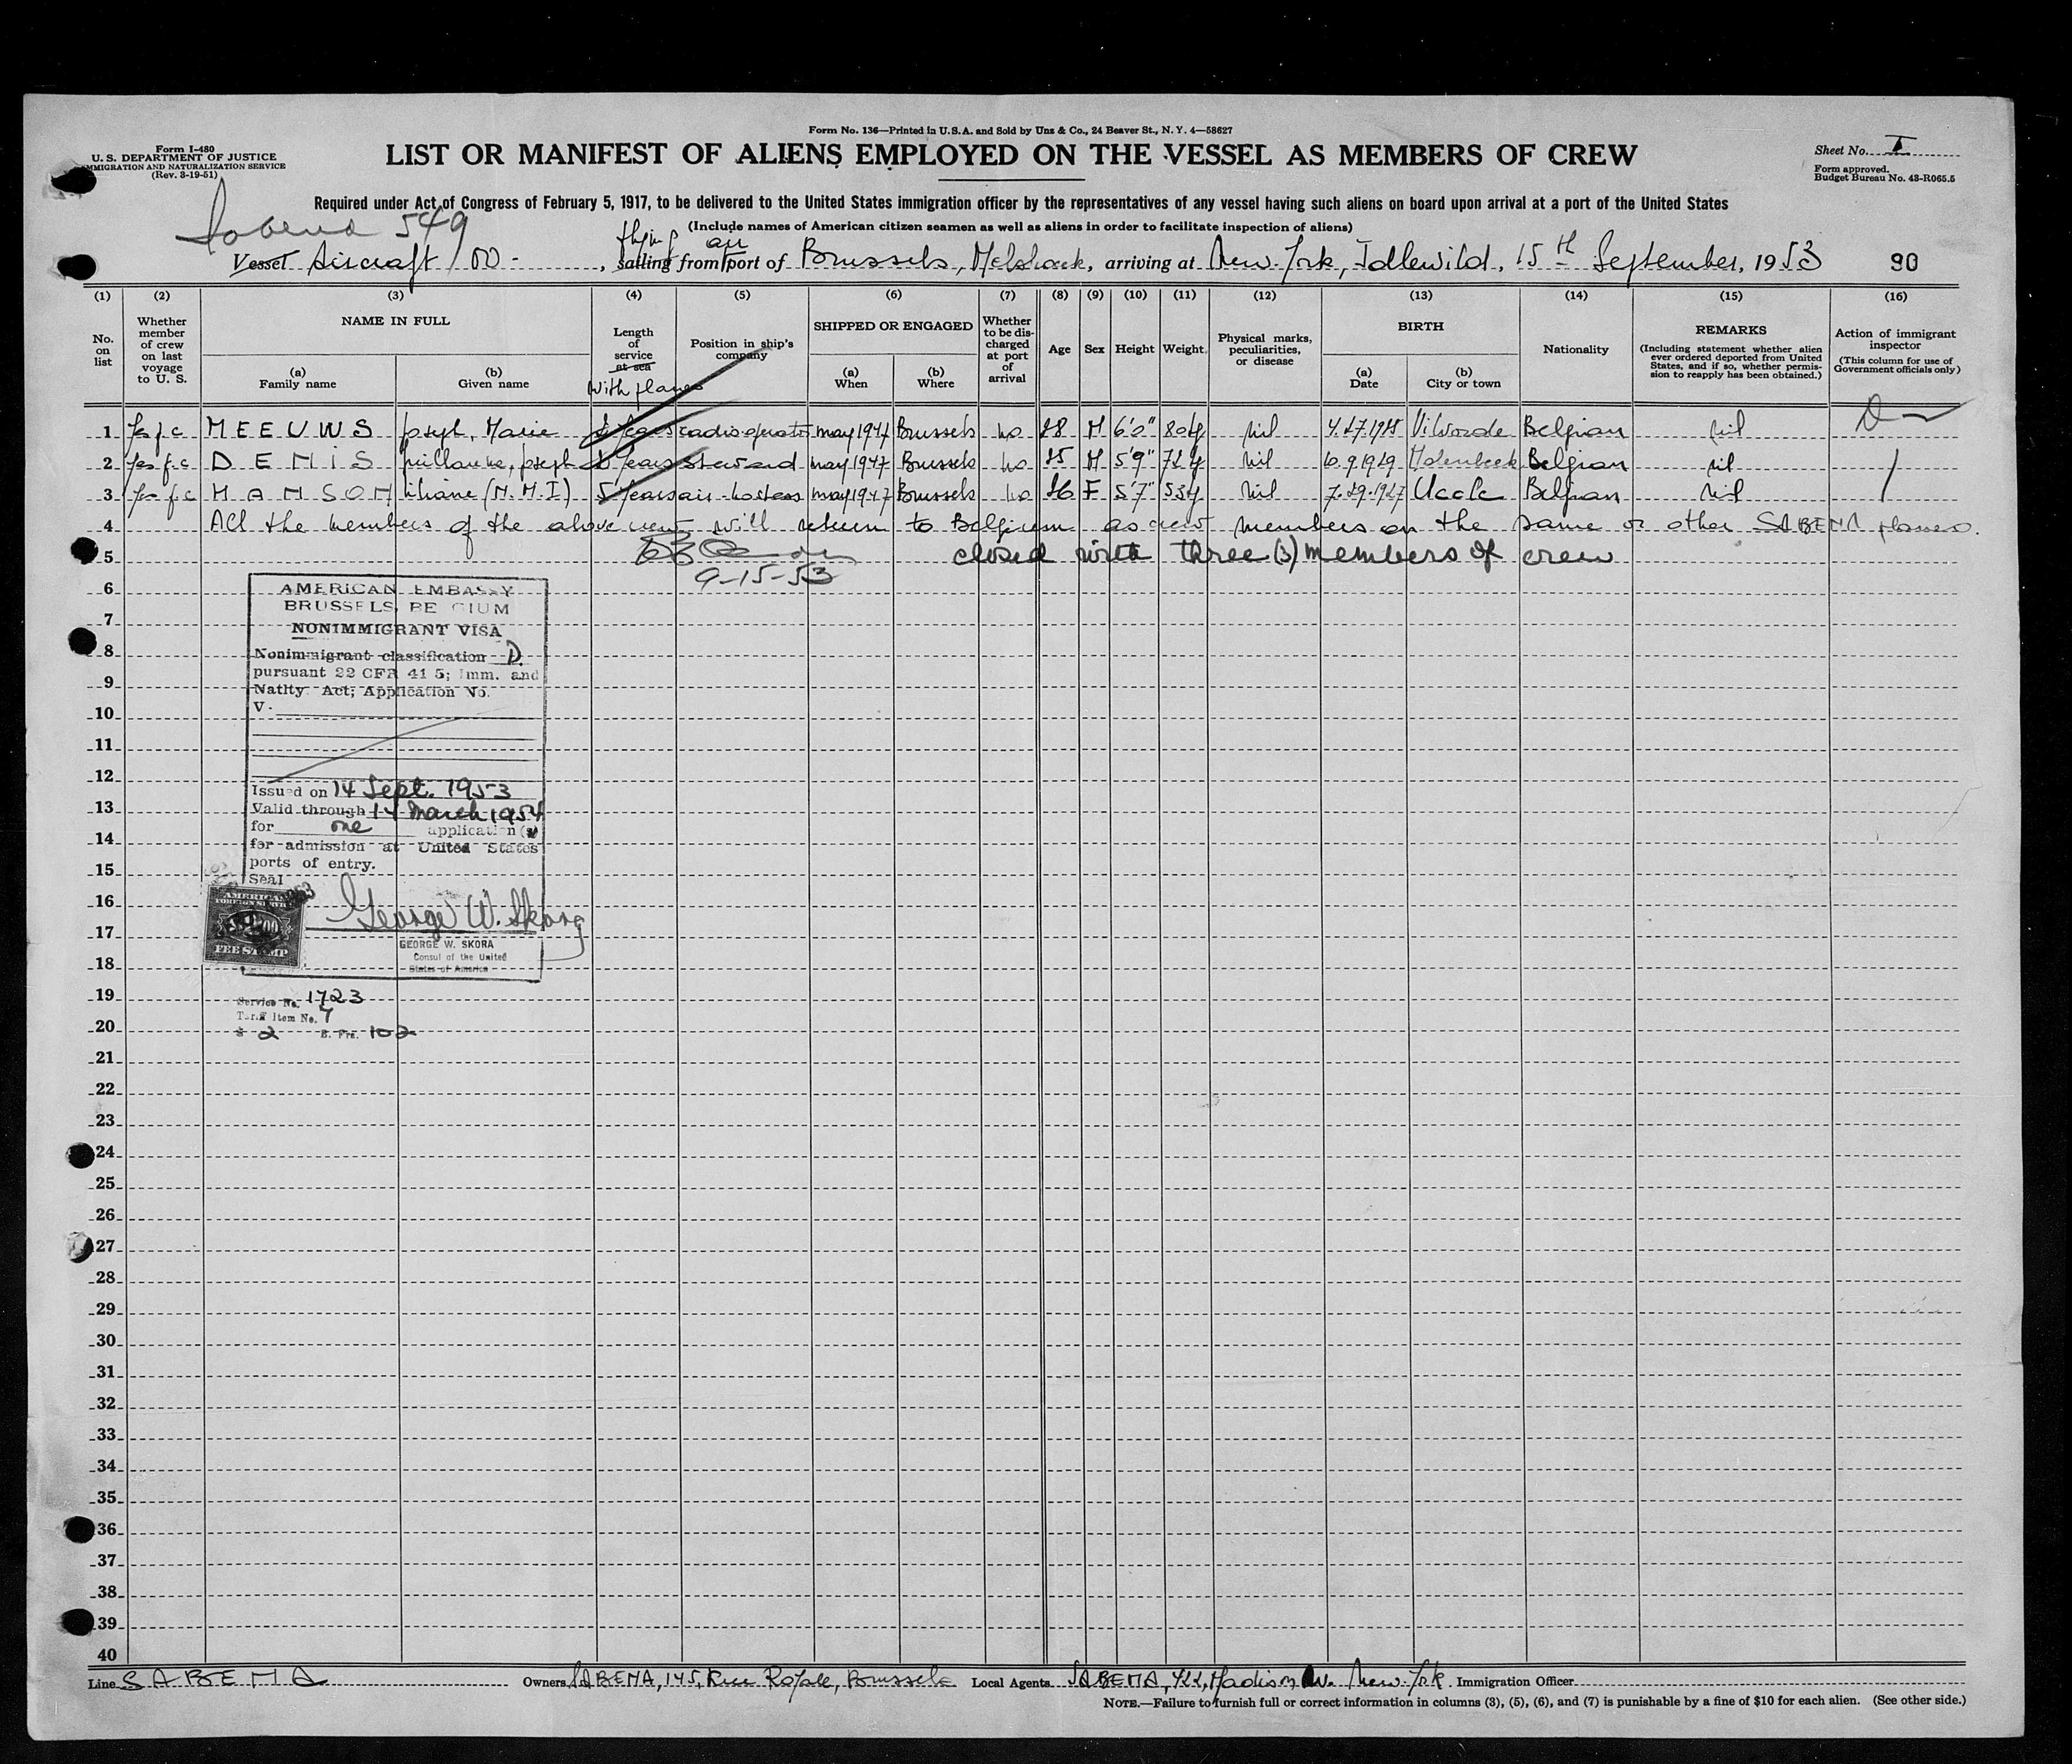 Form No. 136—Printed in U.S.A. and Sold by Unz & Co., 24 Beaver St., N. Y. 4—58627
Form I-480
U. S. DEPARTMENT OF JUSTICE
IMMIGRATION AND NATURALIZATION SERVICE
(Rev. 3-19-51)
LIST OR MANIFEST OF ALIENS EMPLOYED ON THE VESSEL AS MEMBERS OF CREW
Sheet No. I
Form approved.
Budget Bureau No. 43-R065.5
Required under Act of Congress of February 5, 1917, to be delivered to the United States immigration officer by the representatives of any vessel having such aliens on board upon arrival at a port of the United States
(Include names of American citizen seamen as well as aliens in order to facilitate inspection of aliens)
Sabena 549
flying air
Vessel Aircraft OO- , sailing from port of Brussels, Melsbroek, arriving at New-York, Idlewild, 15th September, 1953 90
(1) (2) (3) (4) (5) (6) (7) (8) (9) (10) (11) (12) (13) (14) (15) (16)
No. on list
Whether member of crew on last voyage to U. S.
NAME IN FULL
(a) Family name
(b) Given name
Length of service at sea
with planes
Position in ship's company
SHIPPED OR ENGAGED
(a) When
(b) Where
Whether to be discharged at port of arrival
Age Sex Height Weight
Physical marks, peculiarities, or disease
BIRTH
(a) Date
(b) City or town
Nationality
REMARKS
(Including statement whether alien ever ordered deported from United States, and if so, whether permission to reapply has been obtained.)
Action of immigrant inspector
(This column for use of Government officials only)
1 Yes f.c MEEUWS Joseph, Marie years radio operator may 1947 Brussels no 28 M 6'0" 80 kg nil Vilvorde Belgian nil
2 Yes f.c DENIS Guillaume, Joseph years steward may 1947 Brussels no M 5'9" 72 kg nil Molenbeek Belgian nil
3 Yes f.c HANSON Liliane (M.M.I) 5 years air-hostess may 1947 Brussels no 26 F 5'7" 53 kg nil 7.29.1927 Uccle Belgian nil
4 All the members of the above crew will return to Belgium as crew members on the same or other SABENA planes.
5 closed with three (3) members of crew
9-15-53
6
7
8
9
10
11
12
13
14
15
16
17
18
19
20
21
22
23
24
25
26
27
28
29
30
31
32
33
34
35
36
37
38
39
40
AMERICAN EMBASSY
BRUSSELS, BE GIUM
NONIMMIGRANT VISA
Nonimmigrant classification D
pursuant 22 CFR 41 5; Imm. and
Natlty Act; Application No.
V.
Issued on 14 Sept. 1953
Valid through 14 March 1954
for one application (s)
for admission at United States
ports of entry.
Seal
AMERICAN
FOREIGN SERVICE
FEE STAMP
George W. Skora
GEORGE W. SKORA
Consul of the United
States of America
Service No. 1723
Tariff Item No. 7
$ 2 B. Frs. 102
Line SABENA Owners SABENA, 145, Rue Royale, Brussels Local Agents SABENA, 422, Madison Av. New-York Immigration Officer
NOTE.—Failure to furnish full or correct information in columns (3), (5), (6), and (7) is punishable by a fine of $10 for each alien. (See other side.)